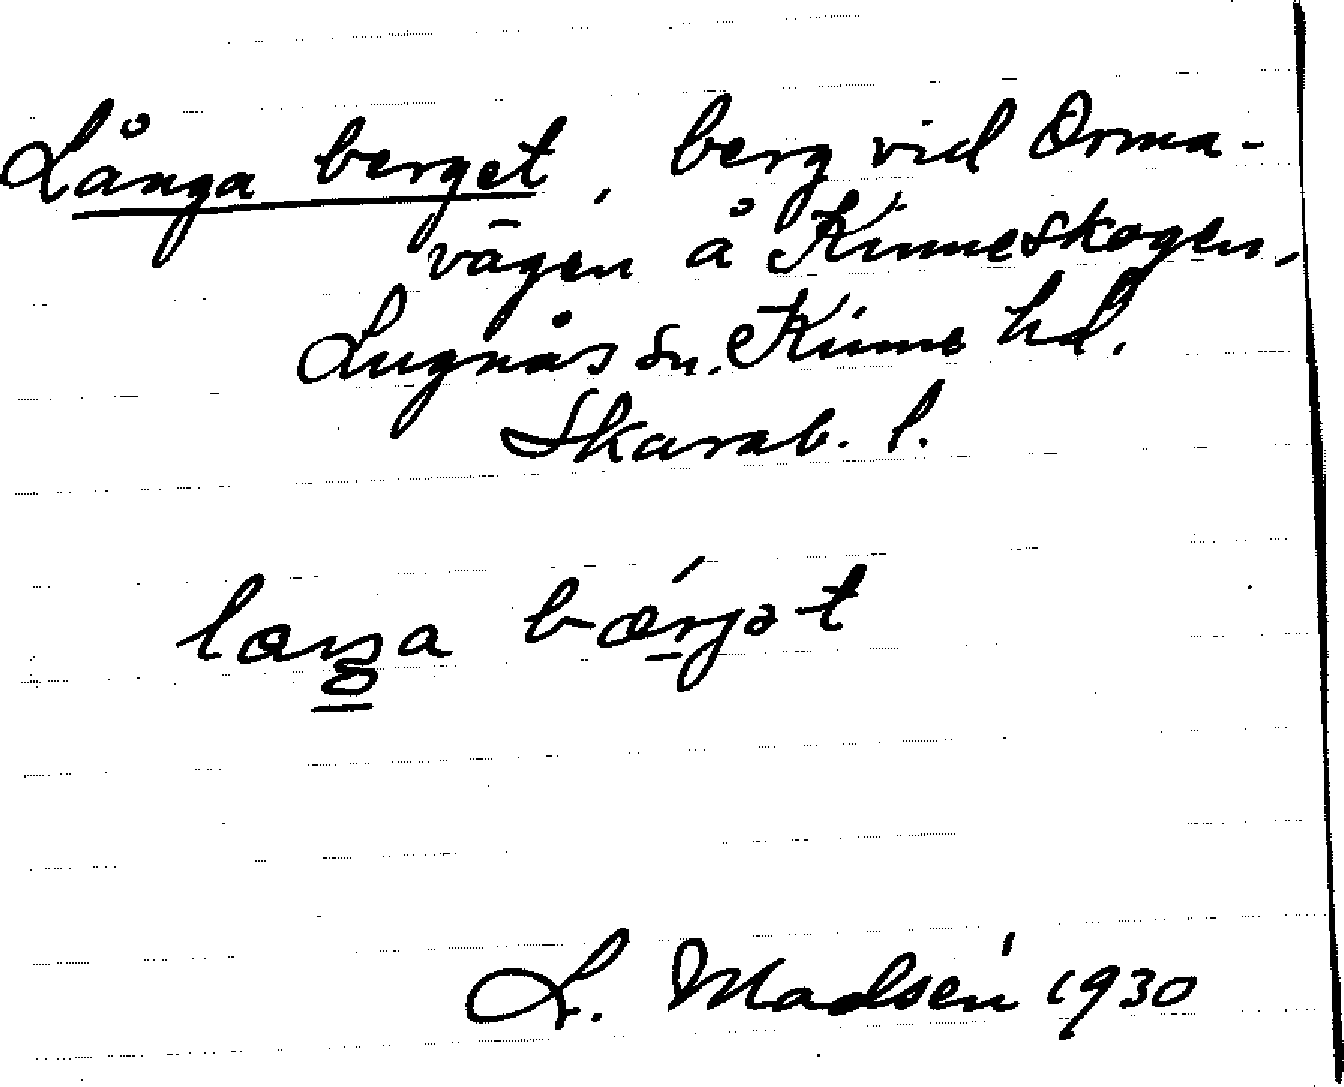 Långa berget, berg vid Orma-
vägen å Kinneskogen,
Lugnås sn. Kinne hd.
Skarab. l.
bærjət
L. Madsén 1930